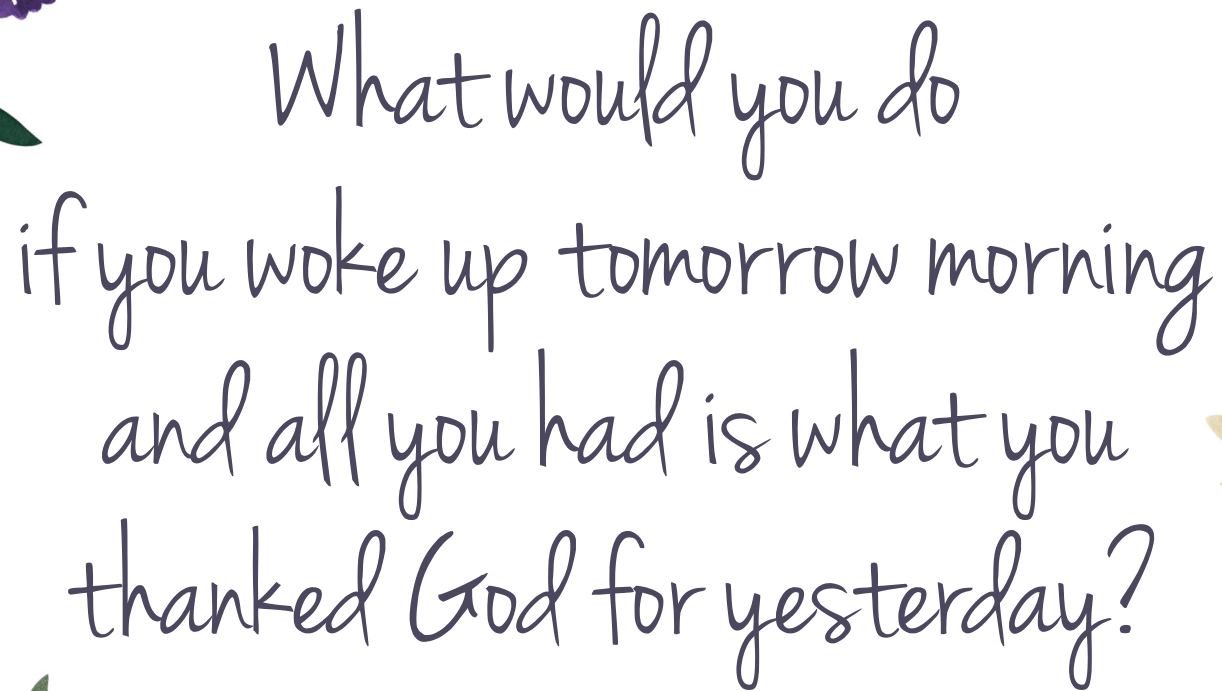 What would you do
if you woke up tomorrow morning
and all you had is what you
thanked God for yesterday?